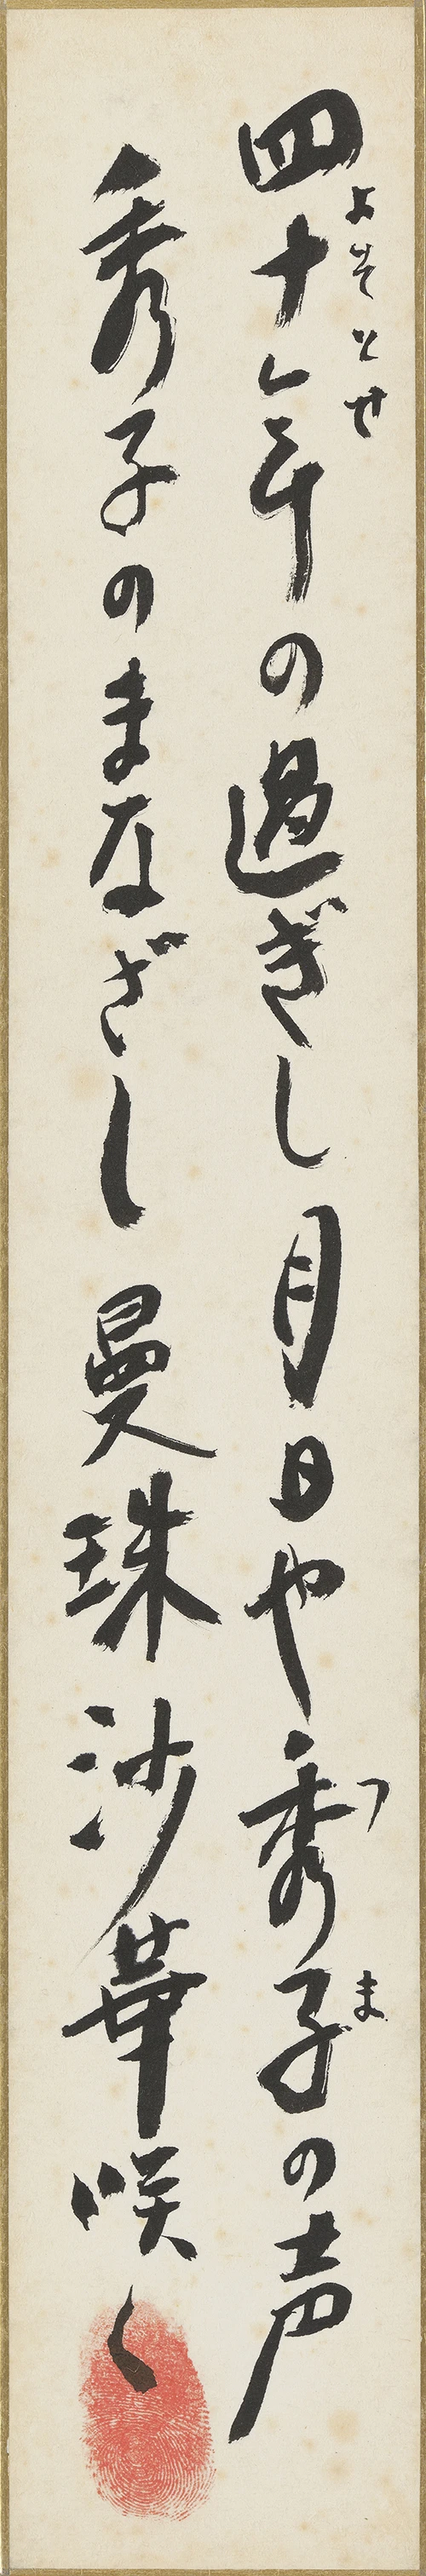 四十年の過ぎし月日や秀子の声
よそとせ
つま
秀子のまなざし曼珠沙華咲く